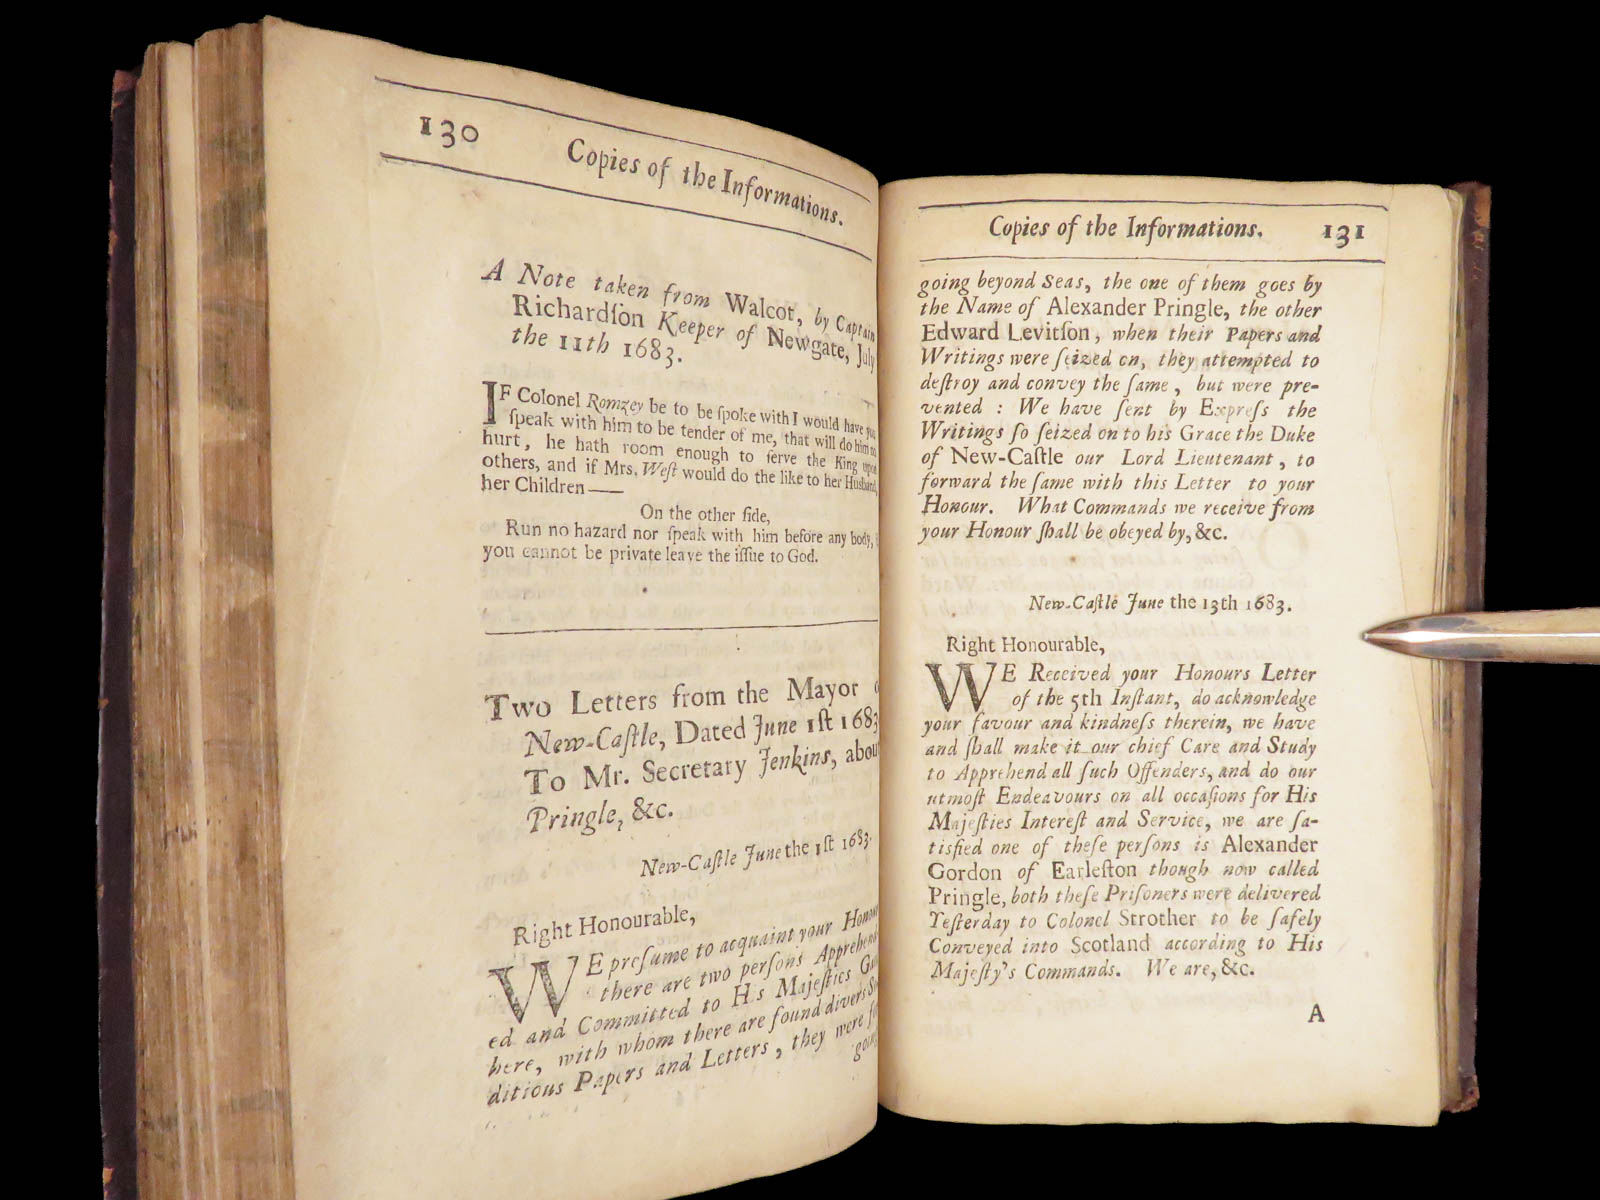 130
Copies of the Informations.
A Note taken from Walcot, by Captain
Richardſon Keeper of Newgate, July
the 11th 1683.
IF Colonel Romzey be to be ſpoke with I would have you
ſpeak with him to be tender of me, that will do him no
hurt, he hath room enough to ſerve the King upon
others, and if Mrs. Weſt would do the like to her Husband,
her Children——
On the other ſide,
Run no hazard nor ſpeak with him before any body,
you cannot be private leave the iſſue to God.
Two Letters from the Mayor
New-Caſtle, Dated June 1ſt 1683
To Mr. Secretary Jenkins, about
Pringle, &c.
New-Caſtle June the 1ſt 1683.
Right Honourable,
WE preſume to acquaint your Honour
there are two perſons Apprehend
ed and Committed to His Majeſties
here, with whom there are found divers
ditious Papers and Letters, they were
going
Copies of the Informations. 131
going beyond Seas, the one of them goes by
the Name of Alexander Pringle, the other
Edward Levitſon, when their Papers and
Writings were ſeized on, they attempted to
deſtroy and convey the ſame, but were pre-
vented : We have ſent by Expreſs the
Writings ſo ſeized on to his Grace the Duke
of New-Caſtle our Lord Lieutenant, to
forward the ſame with this Letter to your
Honour. What Commands we receive from
your Honour ſhall be obeyed by, &c.
New-Caſtle June the 13th 1683.
Right Honourable,
WE Received your Honours Letter
of the 5th Inſtant, do acknowledge
your favour and kindneſs therein, we have
and ſhall make it our chief Care and Study
to Apprehend all ſuch Offenders, and do our
utmoſt Endeavours on all occaſions for His
Majeſties Intereſt and Service, we are ſa-
tisfied one of theſe perſons is Alexander
Gordon of Earleſton though now called
Pringle, both theſe Priſoners were delivered
Yeſterday to Colonel Strother to be ſafely
Conveyed into Scotland according to His
Majeſty's Commands. We are, &c.
A